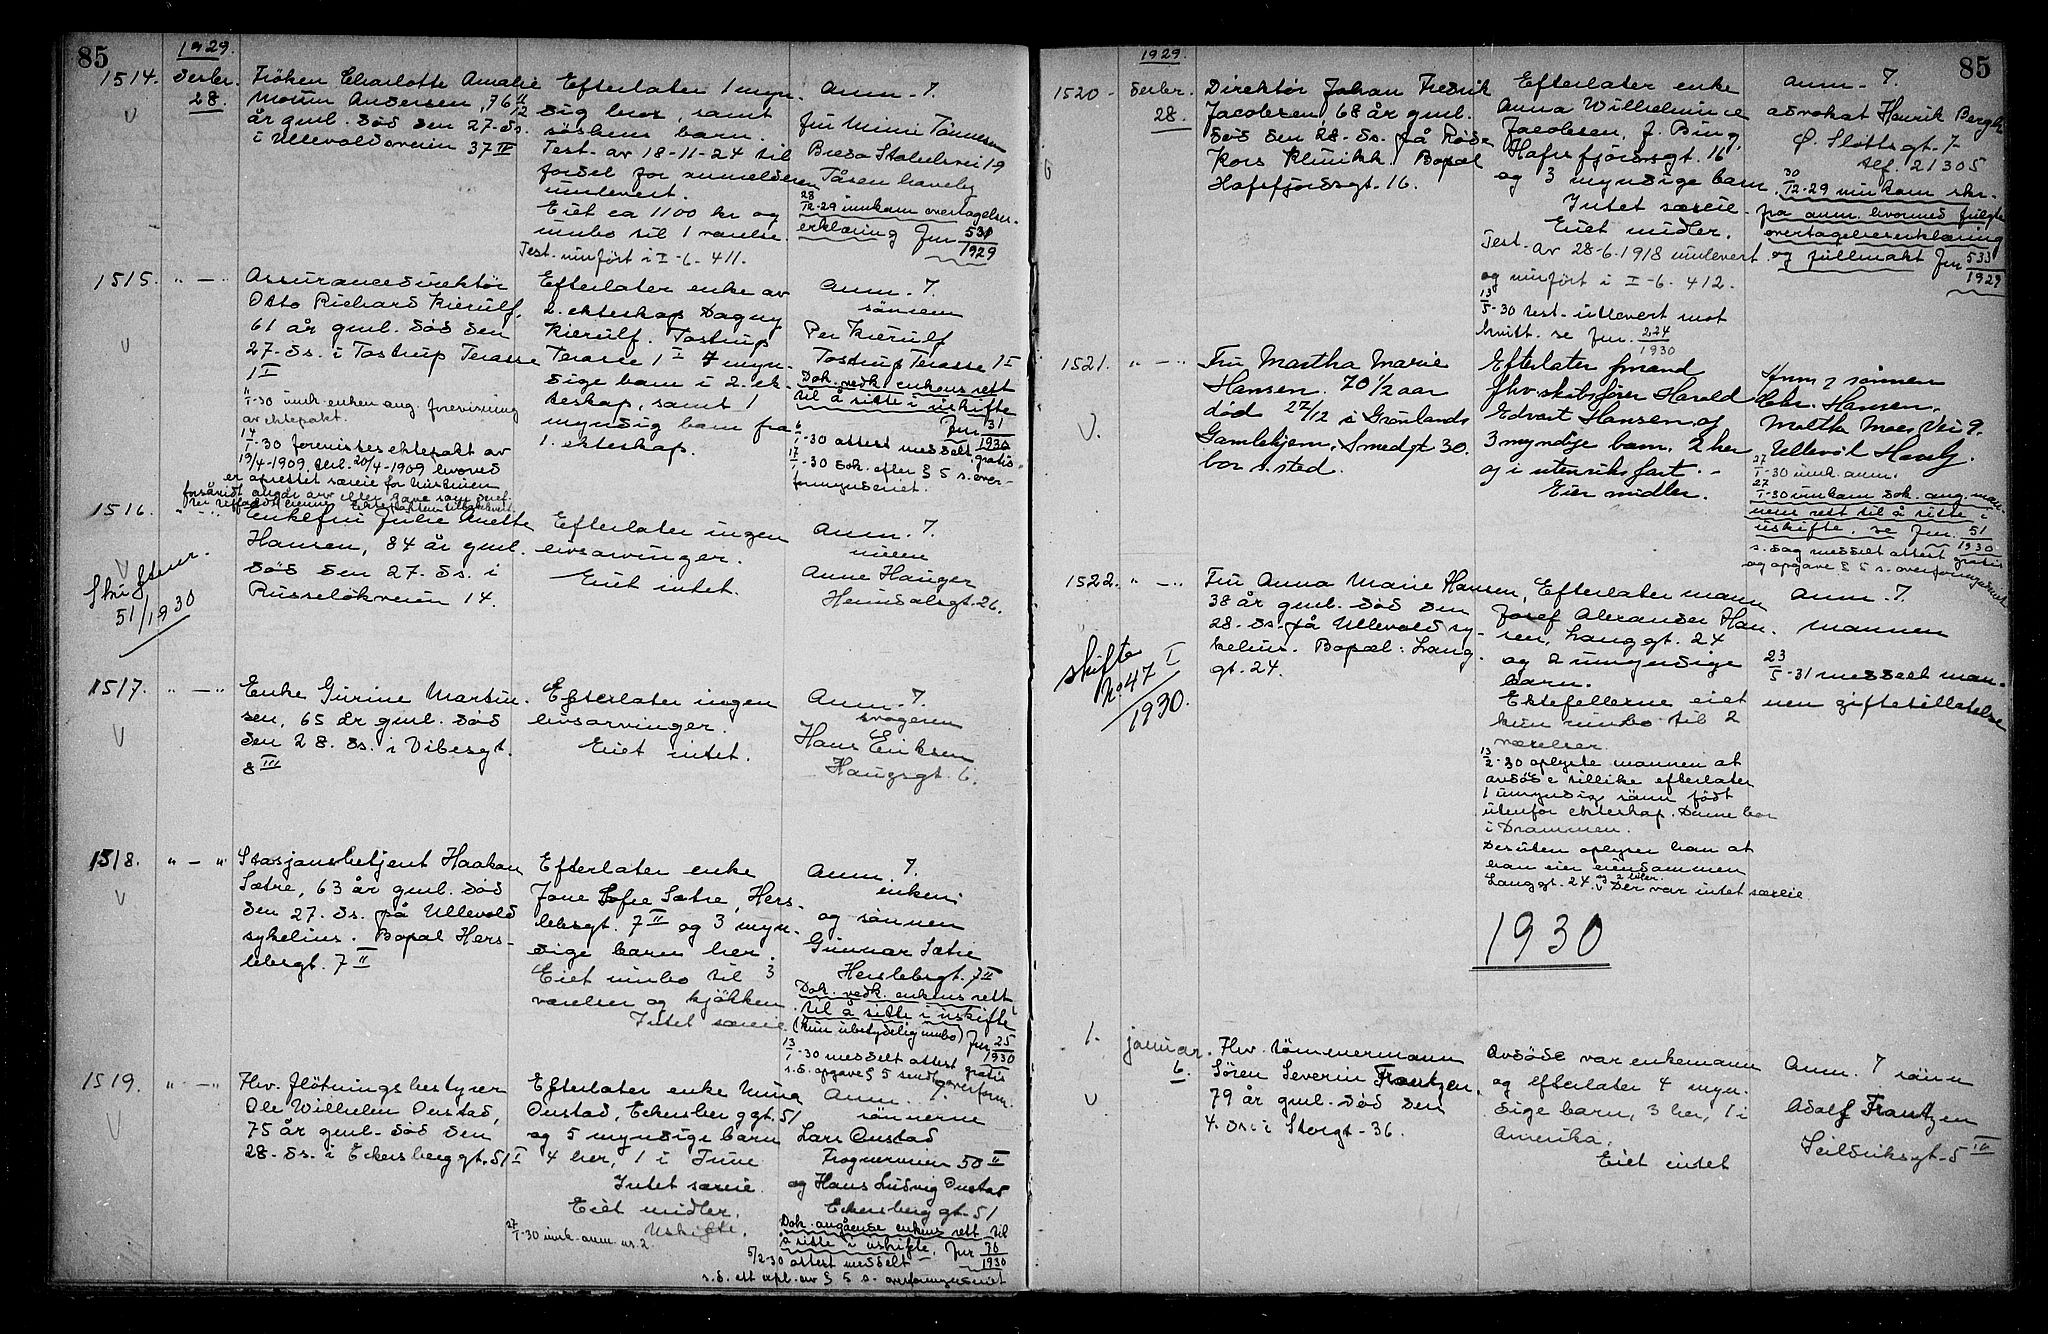 85
1929.
1514.
Desbr.
28.
Frøken Charlotte Amalie
Moum Andersen, 76 11/12
år gml. død den 27. ds.
i Ullevoldsveien 37 IV
Efterlater 1 myn-
dig bror, samt
søskens barn.
Test. av 18-11-24 til
fordel for anmelderen
innlevert.
Eiet ca 1100 kr og
innbo til 1 værelse.
Test. innført i I-6-411.
Anm. 7.
Frk Mimi Tønnesen
Breda Stadelsvei 19
Tåsen haveby
28/12-29 innkom overtagelses-
erklæring Jnr 531/1929
1515.
" — "
Assurancedirektør
Otto Richard Kierulf,
61 år gml. død den
27. ds. i Tostrup Terasse
1 I
11/1-30 innk. enken ang. forevisning
av ektepakt.
14/1-30 forevistes ektepakt av
19/4-1909, tinl. 20/4-1909 hvorved
er oprettet særeie for hustruen
Efterlater enke av
2. ekteskap Dagny
Kierulf. Tostrup
Terasse 1 I 4 myn-
dige barn i 2. ek-
teskap, samt 1
myndig barn fra
1. ekteskap.
Anm. 7.
sønnen
Per Kierulf
Tostrup Terasse 1 I
Dok. vedk. enkens rett
til å sitte i uskifte
Jnr 31/1930
6/1-30 attest meddelt gratis.
17/1-30 dok. efter § 5 s. over-
formynderiet.
1516.
" — "
Skiftenr.
51/1930
Enkefru Julie Anette
Hansen, 84 år gml.
død den 27. ds. i
Russeløkveien 14.
Efterlater ingen
livsarvinger.
Eiet intet.
Anm. 7.
niesen
Anne Hauger
Heimdalsgt. 26.
1517.
" — "
Enke Gurine Martin-
sen, 65 år gml. død
den 28. ds. i Vibesgt.
8 III
Efterlater ingen
livsarvinger.
Eiet intet.
Anm. 7.
svogeren
Hans Eriksen
Haugsgt. 6.
1518.
" — "
Stasjonsbetjent Haakon
Sætre, 63 år gml. død
den 27. ds. på Ullevold
sykehus. Bopæl Hers-
lebsgt. 7 II
Efterlater enke
Jone Sofie Sætre, Hers-
lebsgt. 7 II og 3 myn-
dige barn her.
Eiet innbo til 3
værelser og kjøkken
Intet særeie
Anm. 7.
enken
og sønnen
Gunnar Sætre
Herslebsgt. 7 II
Dok. vedk. enkens rett
til å sitte i uskifte
(kun ubetydelig innbo) Jnr 25/1930
13/1-30 meddelt attest gratis
s. d. opgave § 5 sendt overform.
1519.
" — "
Fhv. fløtningsbestyrer
Ole Wilhelm Onstad,
75 år gml. død den
28. ds. i Eckersberggt. 51 I
Efterlater enke Unna
Onstad, Eckersberggt. 51
og 5 myndige barn
4 her, 1 i Tune
Intet særeie.
Eiet midler.
Uskifte.
27/1-30 innk. anm. nr. 2
Anm. 7.
sønnerne
Lars Onstad
Frognerveien 50 II
og Hans Ludvig Onstad
Eckersberggt. 51
Dok. angående enkens rett til
å sitte i uskifte. Jnr 76/1930
5/2-30 attest meddelt
s. d. ett expl. av § 5 s. overformynderiet
85
1929.
1520-
Desbr.
28.
Direktør Johan Fredrik
Jacobsen, 68 år gml.
død den 28. ds. på Røde
Kors Klinikk. Bopæl
Hafrsfjordsgt. 16.
Efterlater enke
Anna Wilhelmine
Jacobsen, f. Bing,
Hafrsfjordsgt. 16
og 3 myndige barn
Intet særeie.
Eiet midler.
Test. av 28-6-1918 innlevert
og innført i I-6-412.
13/5-30 test. utlevert mot
kvitt. se Jnr. 224/1930
Anm. 7.
advokat Henrik Bergh
Ø. Slottsgt. 7
tlf. 21305
30/12-29 innkom skr.
fra anm. hvormed fulgte
overtagelseserklæring
og fullmakt Jnr 533/1929
1521.
" — "
Fru Martha Marie
Hansen. 70 1/2 aar
død 27/12 i Grønlands
Gamlehjem, Smedgt 30.
bor s. sted.
Efterlater mand
fhv. skibsfører Harald
Edvart Hansen, og
3 myndige barn, 2 her
og i utenriks fart. -
Eier midler.
Anm 7 sønnen
Chr. Hansen.
Moltke Moes Vei 9.
Ullevål Haveby.
27/1-30 innk. anm.
27/1-30 innkom dok. ang. man-
nens rett til å sitte i
uskifte. se Jnr. 51/1930
s. dag meddelt attest gratis
og opgave § 5 s. overformynderiet
1522.
" — "
skifte I
No 47
1930.
Fru Anna Marie Hansen,
38 år gml. død den
28. ds. på Ullevold sy-
kehus. Bopæl: Lang-
gt. 24.
Efterlater mann
Josef Alexander Han-
sen, Langgt. 24
og 2 umyndige
barn.
Ektefellerne eiet
kun innbo til 2
værelser.
13/2-30 oplyste mannen at
avdøde tillike efterlater
1 umyndig sønn født
utenfor ekteskap. Denne bor
i Drammen.
Desuten oplyser han at
han eier eiendommen
Langgt. 24. Der var intet særeie
Anm. 7.
mannen
23/5-31 meddelt man-
nen giftetillatelse
1930
1.
januar
6.
Fhv. tømmermann
Søren Severin Frantzen,
79 år gml. død den
4. ds. i Storgt. 36.
Avdøde var enkemann
og efterlater 4 myn-
dige barn, 3 her, 1 i
Amerika.
Eiet intet
Anm. 7 sønn
Adolf Frantzen
Seilduksgt. 5 III